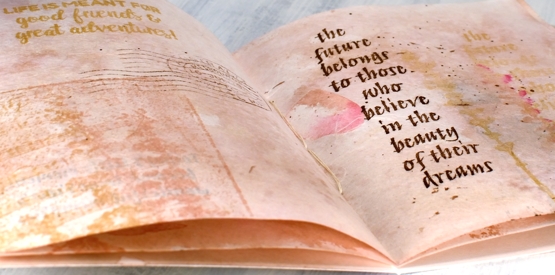 LIFE IS MEANT FOR
good friends &
great adventures!
the
future
belongs
to those
who
believe
in the
beauty
of their
dreams
the
future